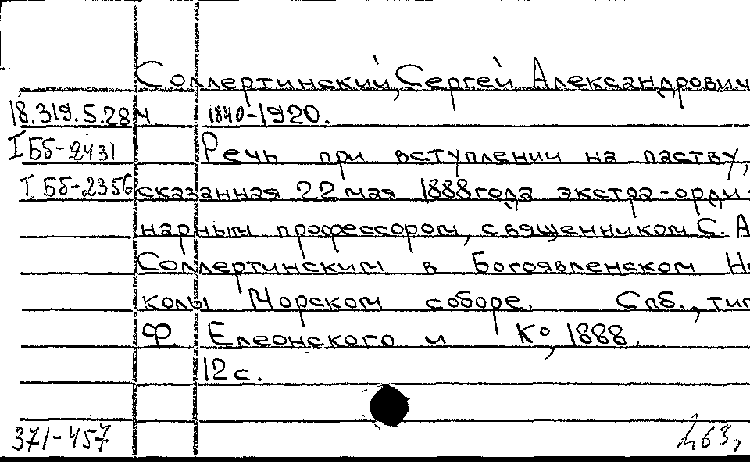 Соллертинский, Сергей Александрович
18.319.5.284 1840-1920.
I Бб-2431 Речь при вступлении на паству,
I Бб-2356 сказанная 22 мая 1888 года экстра-орди
нарным профессором, священником С. А
Соллертинским в Богоявленском Ни
колы Морском соборе. Спб., тип
Ф. Елеонского и Ко, 1888.
12 с.
371-457